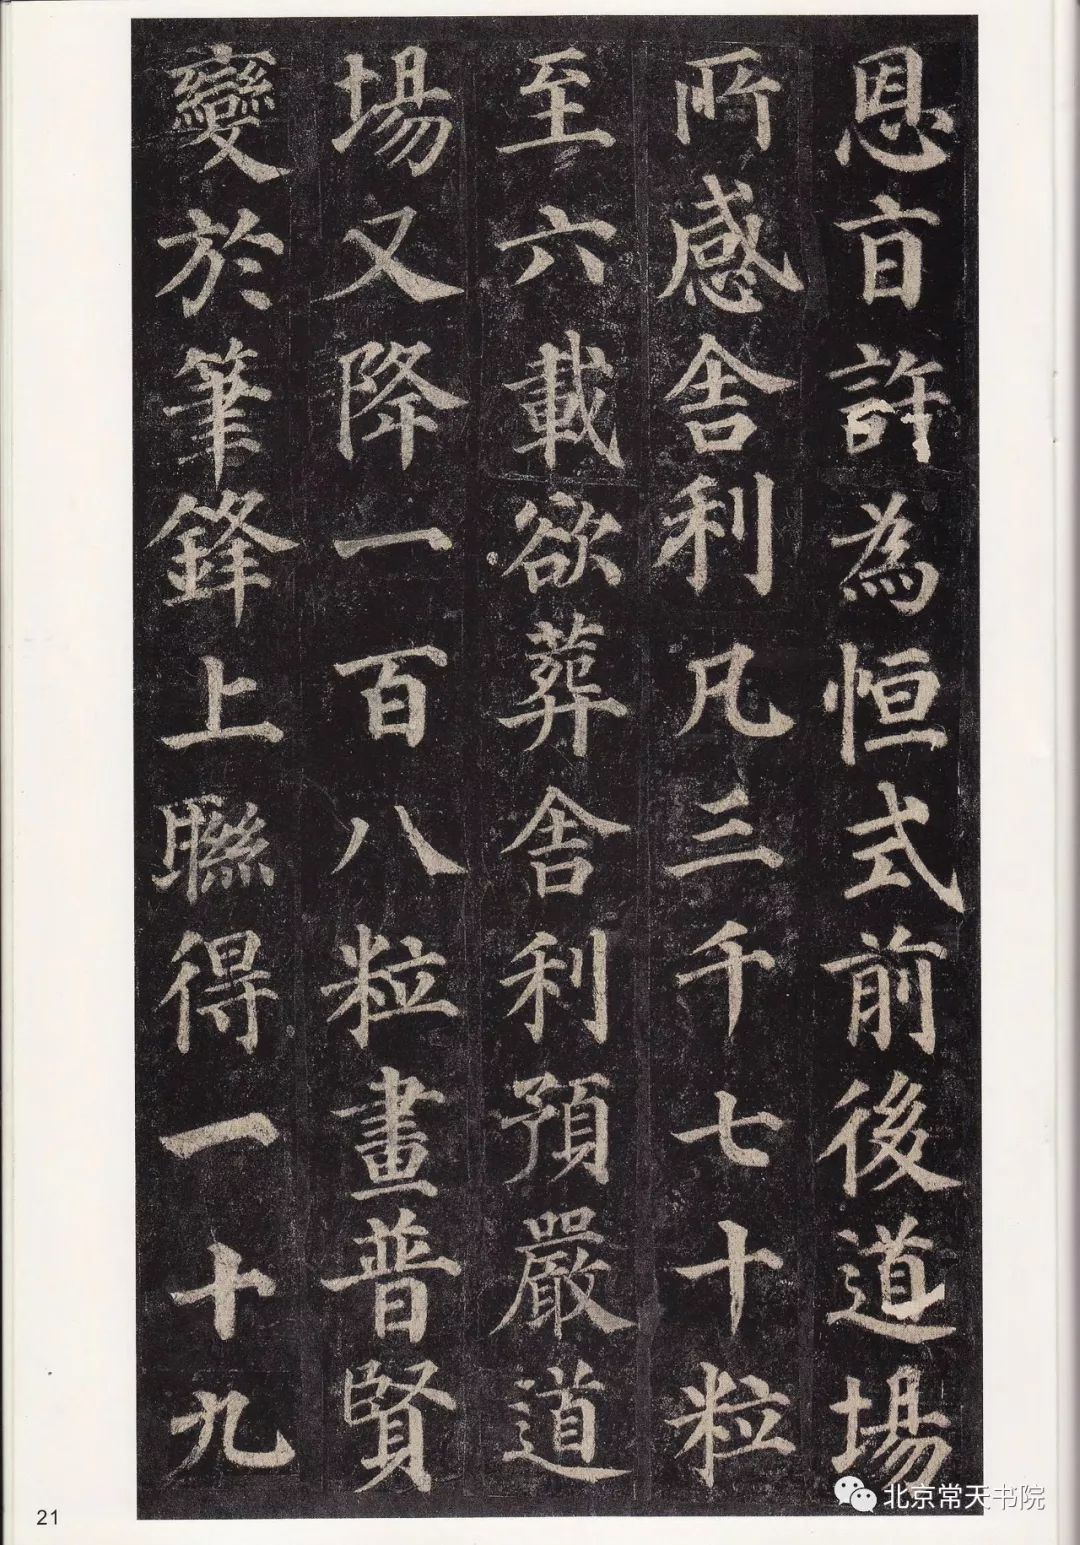 恩旨許為恒式前後道場
所感舍利凡三千七十粒
至六載欲葬舍利預嚴道
場又降一百八粒畫普賢
變於筆鋒上聯得一十九
21
北京常天书院